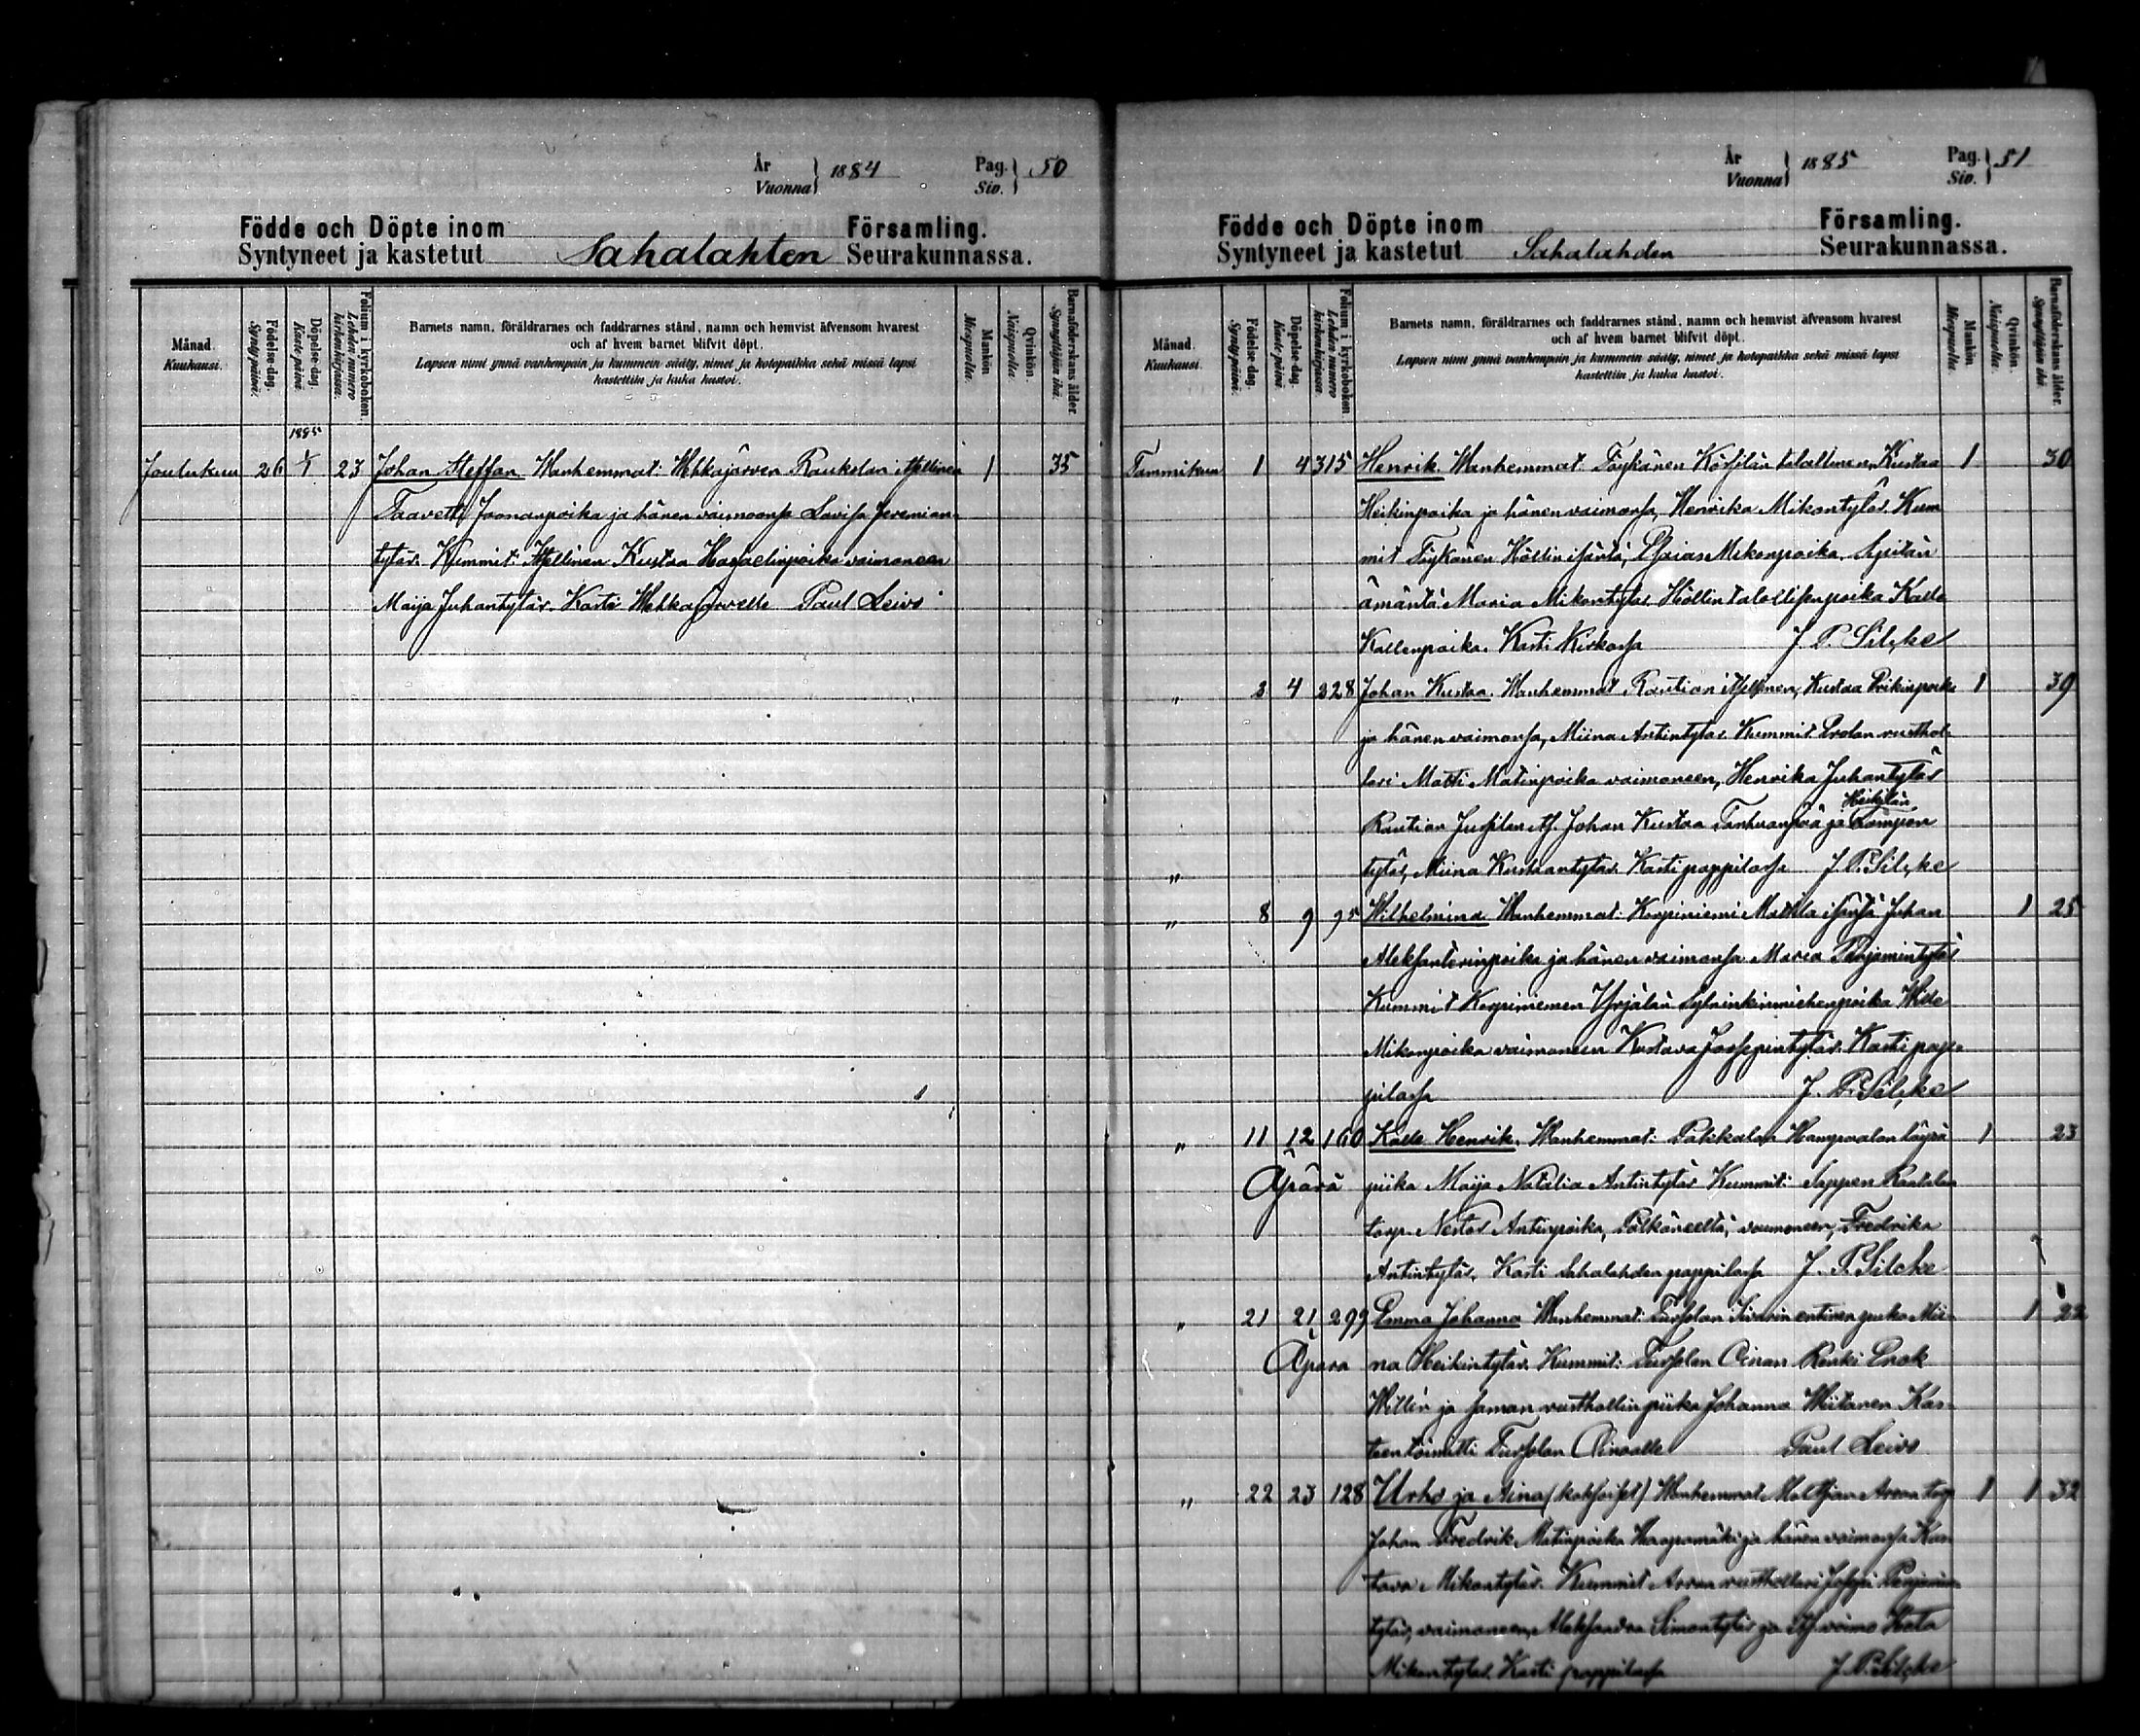 År
Vuonna } 1884 Pag.
Siv. } 50
Födde och Döpte inom Församling.
Syntyneet ja kastetut Sahalahten Seurakunnassa.
Månad.
Kuukausi.
Födelse-dag.
Syntypäivä.
Döpelse-dag.
Kaste päivä.
Folium i kyrkoboken.
Lehden numero
kirkonkirjassa.
Barnets namn, föräldrarnes och faddrarnes stånd, namn och hemvist äfvensom hvarest
och af hvem barnet blifvit döpt.
Lapsen nimi ynnä vanhempain ja kummein sääty, nimet ja kotopaikka sekä missä lapsi
kastettiin ja kuka kastoi.
Mankön.
Miespuolta.
Qvinkön.
Naispuolta.
Barnaföderskans ålder.
Synnyttäjän ikä.
1885
Joulukuu 26 1/1 23 Johan Steffan Wanhemmat: Wehkajärven Raukolan itsellinen 1 35
Taavetti Joonanpoika ja hänen vaimonsa Lovisa Jeremian-
tytär. Kummit: Itsellinen Kustaa vaimoneen
Maija Juhantytär. Kasti Wehkajärvellä Paul Leivo
År
Vuonna } 1885 Pag.
Siv. } 51
Födde och Döpte inom Församling.
Syntyneet ja kastetut Sahalahden Seurakunnassa.
Månad.
Kuukausi.
Födelse-dag.
Syntypäivä.
Döpelse-dag.
Kaste päivä.
Folium i kyrkoboken.
Lehden numero
kirkonkirjassa.
Barnets namn, föräldrarnes och faddrarnes stånd, namn och hemvist äfvensom hvarest
och af hvem barnet blifvit döpt.
Lapsen nimi ynnä vanhempain ja kummein sääty, nimet ja kotopaikka sekä missä lapsi
kastettiin ja kuka kastoi.
Mankön.
Miespuolta.
Qvinkön.
Naispuolta.
Barnaföderskans ålder.
Synnyttäjän ikä.
Tammikuu 1 4 315 Henrik. Wanhemmat talollinen, Kustaa 1 30
Heikinpoika ja hänen vaimonsa, Henrika Mikontytär. Kum
mit isäntä, Esaias Mikonpoika.
ämäntä Maria Mikontytär. Kalle
Kallenpoika. Kasti Kirkossa J. P. Silcke
" 3 4 328 Johan Kustaa. Wanhemmat Rautian itsellinen, Kustaa Erikinpoika 1 39
ja hänen vaimonsa, Miina Antintytär. Kummit rusthol-
lari Matti Matinpoika vaimoneen, Henrika Juhantytär
Rautian Jussilan its. Johan Kustaa Tanhuanpää ja
" tytär, Miina Kustaantytär. Kasti pappilassa J. P. Silcke
" 8 9 95 Wilhelmina Wanhemmat: Korpiniemi Mattila isäntä Juhan 1 25
Aleksanterinpoika ja hänen vaimonsa Maria Penjamintytär
Kummit Korpiniemen Yrjälän Wille
Mikonpoika vaimoneen Kustava Joosepintytär. Kasti pap-
pilassa J. P. Silcke
" 11 12 160 Kalle Henrik. Wanhemmat: 1 23
Äpärä piika Maija Natalia Antintytär Kummit:
torp. Nestor Antinpoika, Pälkäneeltä, vaimoneen, Fredrika
Antintytär. Kasti Sahalahden pappilassa J. P. Silcke
" 21 21 299 Emma Johanna Wanhemmat: entinen piika Mii- 1 22
Äpärä na Heikintytär. Kummit: Renki Enok
Willin ja saman rusthollin piika Johanna Wiitanen Kas-
teen toimitti Paul Leivo
" 22 23 128 Urho ja Aina (kaksoiset) Wanhemmat torp 1 1 32
Johan Fredrik Matinpoika Haapamäki ja hänen vaimonsa Kus
tava Mikontytär. Kummit rusthollari
vaimoneen, Aleksandra Simontytär ja its. vaimo
Mikontytär. Kasti pappilassa J. P. Silcke